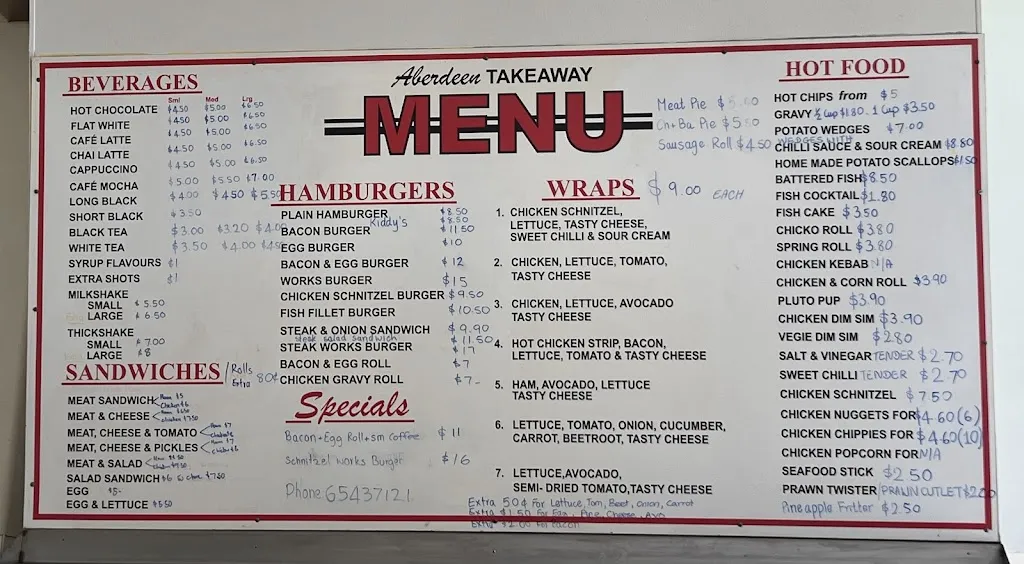 Aberdeen TAKEAWAY
MENU
BEVERAGES
Sml Med Lrg
HOT CHOCOLATE $4.50 $5.00 $6.50
FLAT WHITE $4.50 $5.00 $6.50
CAFÉ LATTE $4.50 $5.00 $6.50
CHAI LATTE $4.50 $5.00 $6.50
CAPPUCCINO
CAFÉ MOCHA $5.00 $5.50 $7.00
LONG BLACK $4.00 $4.50 $5.50
SHORT BLACK $3.50
BLACK TEA $3.00 $3.20
WHITE TEA $3.50 $4.00
SYRUP FLAVOURS $1
EXTRA SHOTS $1
MILKSHAKE
SMALL $5.50
LARGE $6.50
THICKSHAKE
SMALL $7.00
LARGE $8
SANDWICHES /Rolls
Extra 80¢
MEAT SANDWICH
MEAT & CHEESE
MEAT, CHEESE & TOMATO
MEAT, CHEESE & PICKLES
MEAT & SALAD
SALAD SANDWICH $6
EGG $5-
EGG & LETTUCE
HAMBURGERS
PLAIN HAMBURGER $8.50
Kiddy's $8.50
BACON BURGER $11.50
EGG BURGER $10
BACON & EGG BURGER $12
WORKS BURGER $15
CHICKEN SCHNITZEL BURGER $9.50
FISH FILLET BURGER $10.50
STEAK & ONION SANDWICH $9.90
Steak Salad Sandwich $11.50
STEAK WORKS BURGER $17
BACON & EGG ROLL $7
CHICKEN GRAVY ROLL $7-
Specials
Bacon+Egg Roll+sm Coffee $11
Schnitzel Works Burger $16
Phone 65437121
Meat Pie
Pie
Sausage Roll $4.50
WRAPS $9.00 EACH
1. CHICKEN SCHNITZEL,
LETTUCE, TASTY CHEESE,
SWEET CHILLI & SOUR CREAM
2. CHICKEN, LETTUCE, TOMATO,
TASTY CHEESE
3. CHICKEN, LETTUCE, AVOCADO
TASTY CHEESE
4. HOT CHICKEN STRIP, BACON,
LETTUCE, TOMATO & TASTY CHEESE
5. HAM, AVOCADO, LETTUCE
TASTY CHEESE
6. LETTUCE, TOMATO, ONION, CUCUMBER,
CARROT, BEETROOT, TASTY CHEESE
7. LETTUCE,AVOCADO,
SEMI- DRIED TOMATO,TASTY CHEESE
Extra 50¢ For Lettuce, Tom, Beet, Onion, Carrot
Extra $1.50 For Egg, Pine, Cheese, Avo
Extra $2.00 For Bacon
HOT FOOD
HOT CHIPS from $5
GRAVY ½ Cup $1.80 . 1 Cup $3.50
POTATO WEDGES $7.00
WEDGES WITH
CHILLI SAUCE & SOUR CREAM $8.80
HOME MADE POTATO SCALLOPS $1.50
BATTERED FISH $8.50
FISH COCKTAIL $1.80
FISH CAKE $3.50
CHICKO ROLL $3.80
SPRING ROLL $3.80
CHICKEN KEBAB N/A
CHICKEN & CORN ROLL $3.90
PLUTO PUP $3.90
CHICKEN DIM SIM $3.90
VEGIE DIM SIM $2.80
SALT & VINEGAR TENDER $2.70
SWEET CHILLI TENDER $2.70
CHICKEN SCHNITZEL $7.50
CHICKEN NUGGETS FOR $4.60(6)
CHICKEN CHIPPIES FOR $4.60(10)
CHICKEN POPCORN FOR N/A
SEAFOOD STICK $2.50
PRAWN TWISTER/PRAWN CUTLET
Pineapple Fritter $2.50